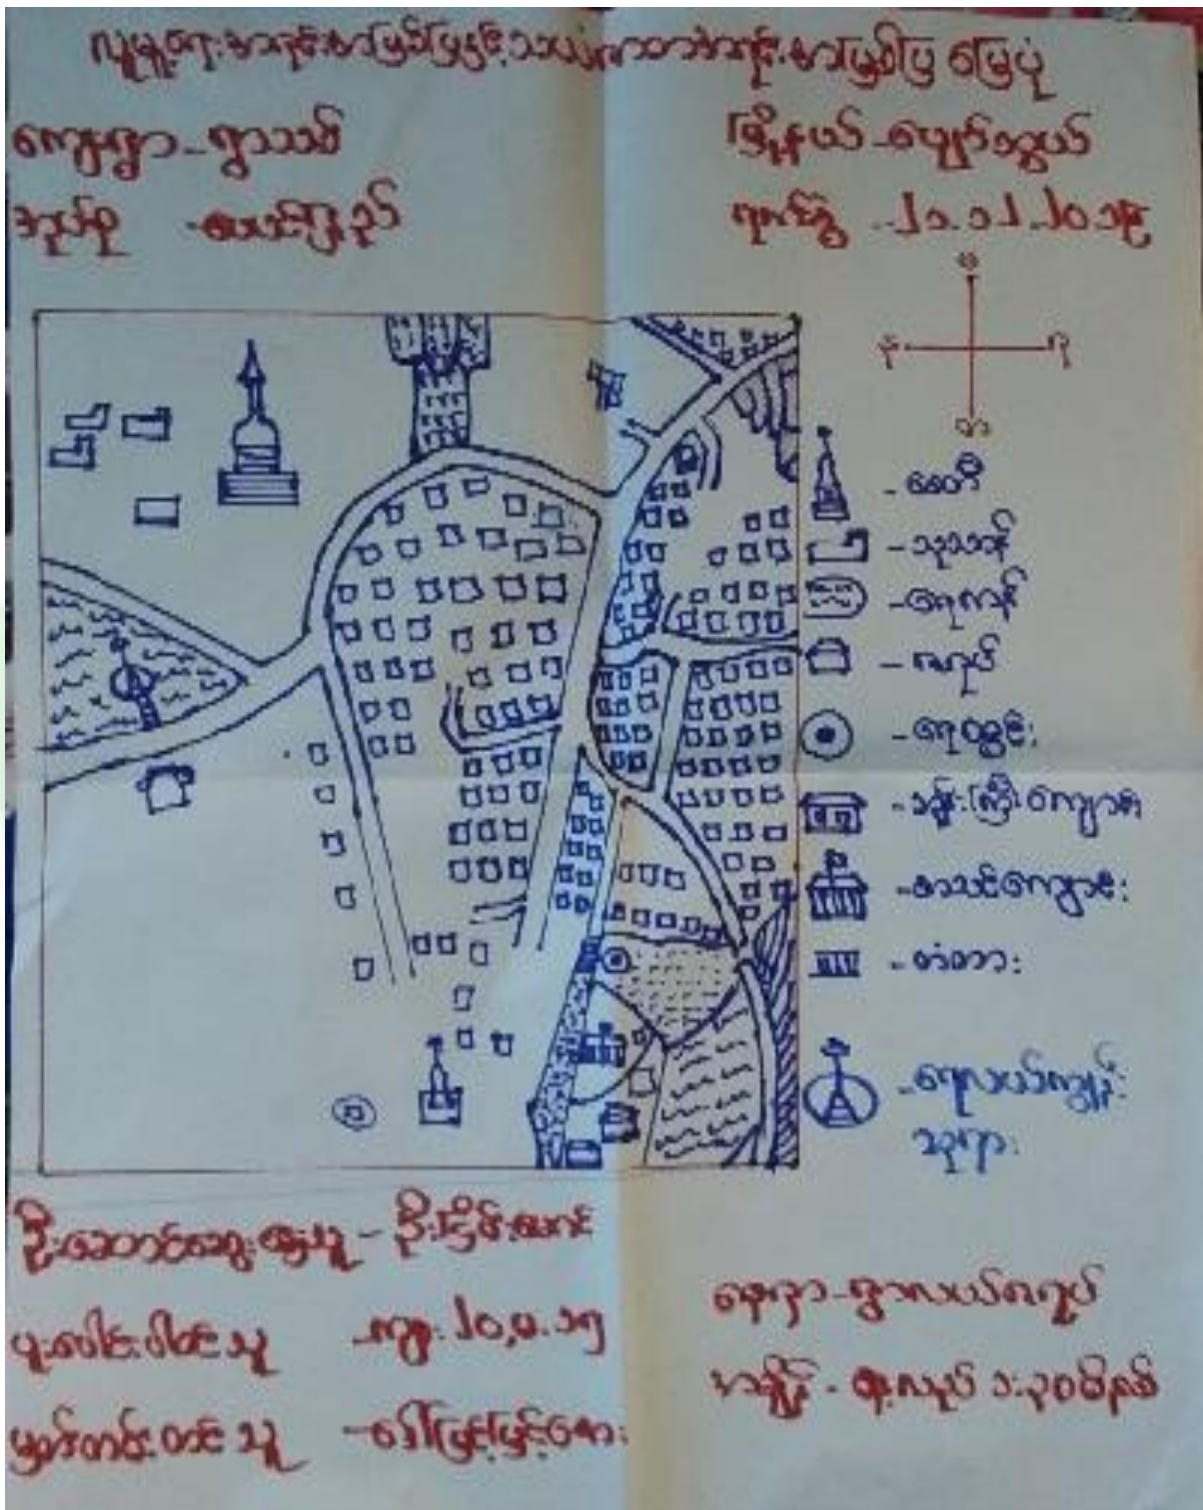 လူမှုရေးအရင်းအမြစ်ပြနှင့်သယံဇာတအရင်းအမြစ်ပြ မြေပုံ
ကျေးရွာ - ရွာသစ်
မြို့နယ် - ပျော်ဘွယ်
အုပ်စု
ရက်စွဲ - ၂၁.၁၂.၂၀၁၉
မ
န
ရ
တ
- စေတီ
- သုသာန်
- ရေကန်
- ဇရပ်
- ရေတွင်း
- ဘုန်းကြီးကျောင်း
- စာသင်ကျောင်း
- တံတား
- ရေလယ်ကျွန်း
ဘုရား
ဦးဆောင်ဆွေးနွေးသူ - ဦးငြိမ်းမောင်
ပူးပေါင်းပါဝင်သူ - ကျား ၂၀, မ ၁၅
မှတ်တမ်းတင်သူ - ဒေါ်မြင့်မြင့်ဝေး
နေရာ - ရွာလယ်ဇရပ်
အချိန် - နေ့လည် ၁:၃၀ မိနစ်